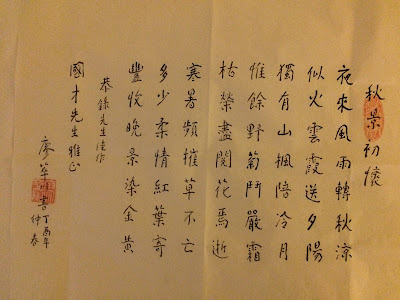 秋景初懷
夜來風雨轉秋涼
似火雲霞送夕陽
獨有山楓陪冷月
惟餘野菊鬥嚴霜
枯榮盡閱花焉逝
寒暑頻摧草不亡
多少柔情紅葉寄
豐收晚景染金黃
恭錄先生佳作
國才先生雅正
廖書
丁酉年
仲春